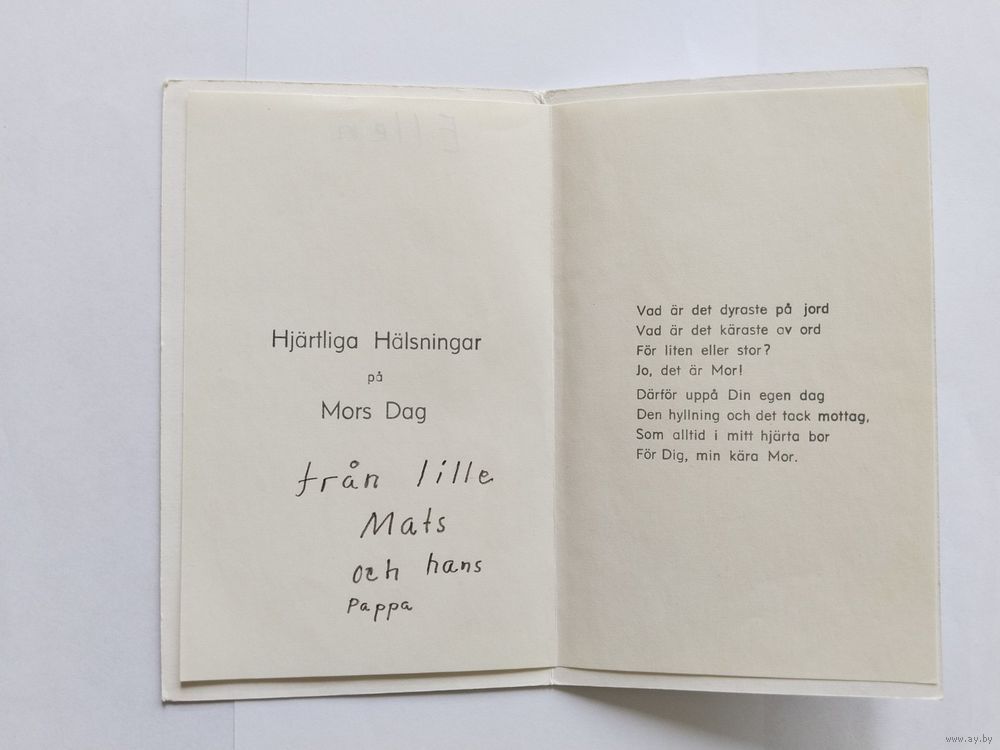 Ellen
Hjärtliga Hälsningar
på
Mors Dag
från lille
Mats
och hans
Pappa
Vad är det dyraste på jord
Vad är det käraste av ord
För liten eller stor?
Jo, det är Mor!
Därför uppå Din egen dag
Den hyllning och det tack mottag,
Som alltid i mitt hjärta bor
För Dig, min kära Mor.
www.ay.by